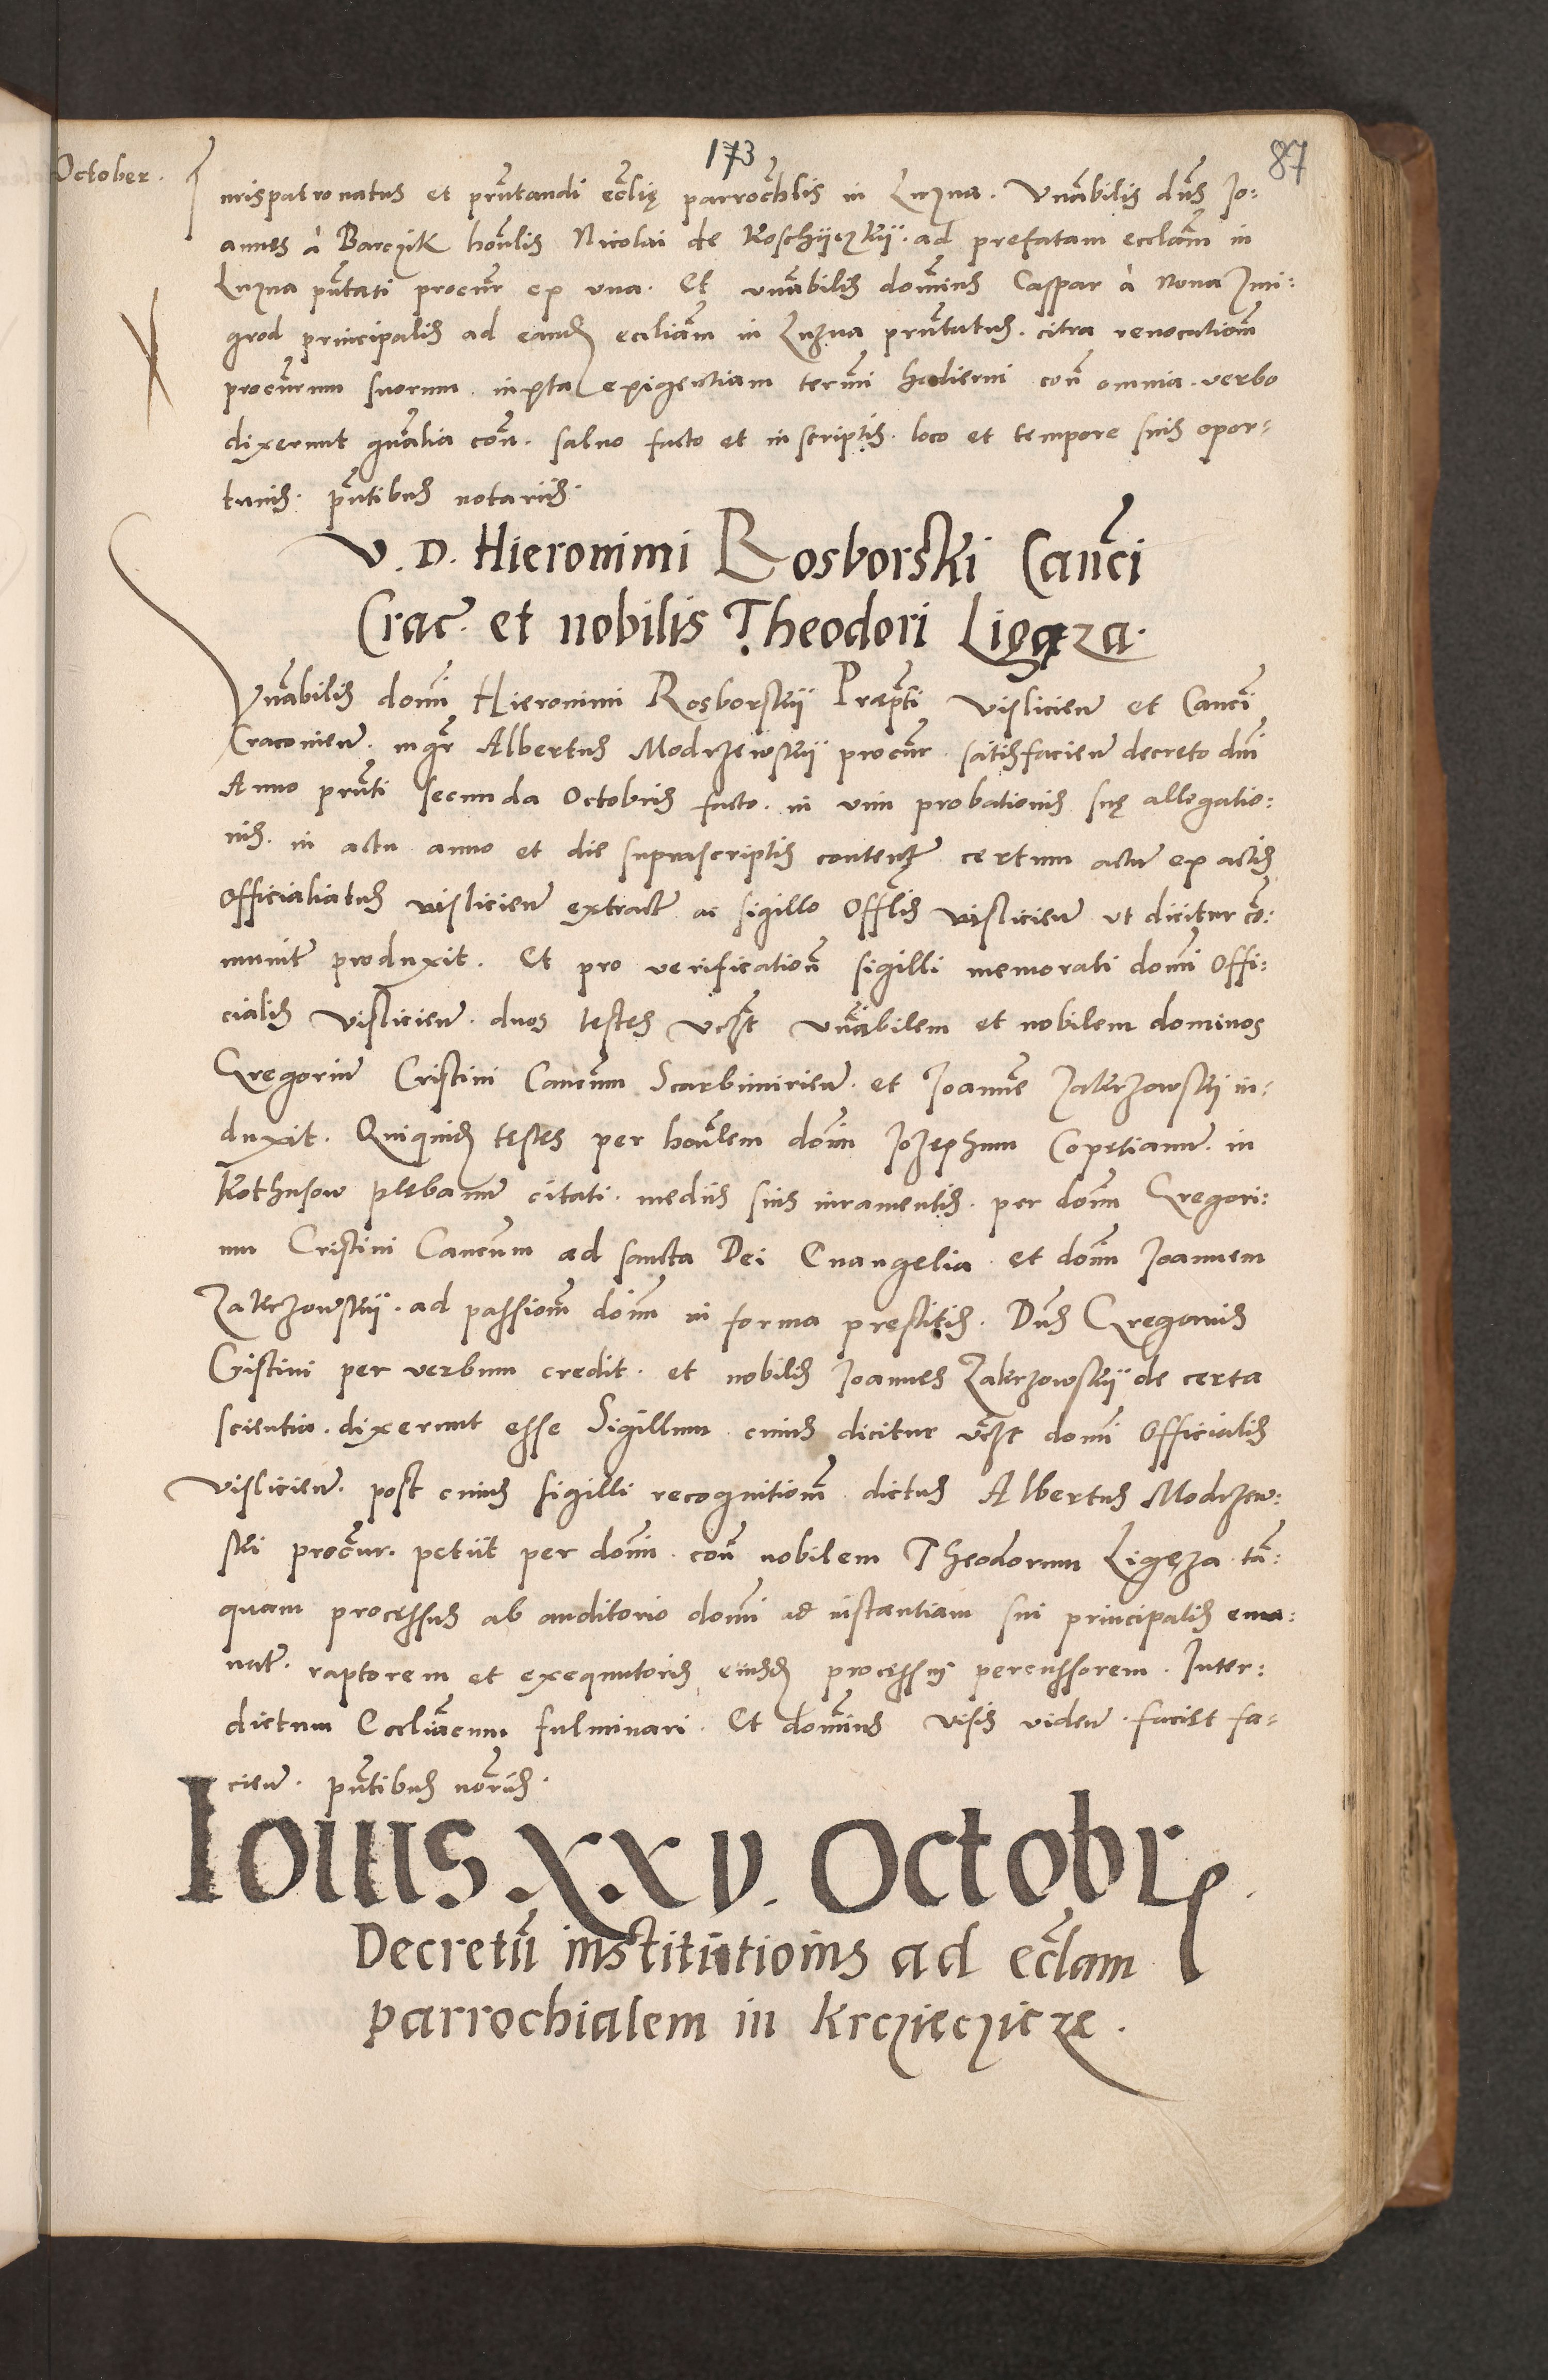 173
87
October.
iurispatronatus et pñtandi ecclię parrochlis in Luzna. Vnabilis dñs Jo:
annes à Barczik honlis Nicolai de Koschijczkij. ad prefatam ecclam in
Luzna pntati procur ex vna. Et vnabilis dominus Caspar à Noua Zmi:
grod principalis ad eandẽ eccliam in Luzna prntatus. citra reuocationem
procurum suorum. iuxta exigentiam termi hodierni con omnia. verbo
dixerunt gnalia con. saluo facto et in scriptis. loco et tempore suis opor:
tunis. pntibus notariis.
V. D. Hieronimi Rosborski Canci
Crac̄. et nobilis Theodori Ligęza.
Vnabilis domi Hieronimi Rosborskij Præpti Vislicien̄ et Canci
Cracouien̄. mgr Albertus Modrzewskij procur. satisfacien̄ decreto dni
Anno pnti secunda Octobris facto. in vim probationis suę allegatio:
nis. in actu anno et die suprascriptis contentę. certum actũ ex actis
Officialiatus vislicien̄ extractũ ac sigillo Offlis vislicien̄ vt dicitur co:
munitũ produxit. Et pro verificationẽ sigilli memorati domi Offi:
cialis Vislicien̄. duos testes vczt vnabilem et nobilem dominos
Gregoriũ Cristini Canonicum Scarbimirien̄. et Joannẽ Zakrzowskij in:
duxit. Quiquidẽ testes per honlem domi Jozephum Copetianũ. in
Kothusow plebanũ citati. mediis suis iuramentis. per domi Gregori:
um Cristini Canonicum ad sancta Dei Euangelia. et domi Joannem
Zakrzowskij. ad passionem domi in forma prestitis. Dns Gregorius
Cristini per verbum credit. et nobilis Joannes Zakrzowskij de certa
scientia. dixerunt esse Sigillum. cuius dicitur vczt domi Officialis
Vislicien̄. post cuius sigilli recognitionem dictus Albertus Modrzew:
ski procur. petiit per domi. con nobilem Theodorum Ligęza. tan:
quam processus ab auditorio domi ad instantiam sui principalis ema:
nati. raptorem et exequutoris eiusdẽ processus percussorem. Inter:
dictum Eccliacum fulminari. Et dominus visis viden̄. faciet fa:
cien̄. pntibus notriis.
Iouis XXV. Octobris.
Decretũ institutionis ad ecclam
parrochialem in Krczieczicze.